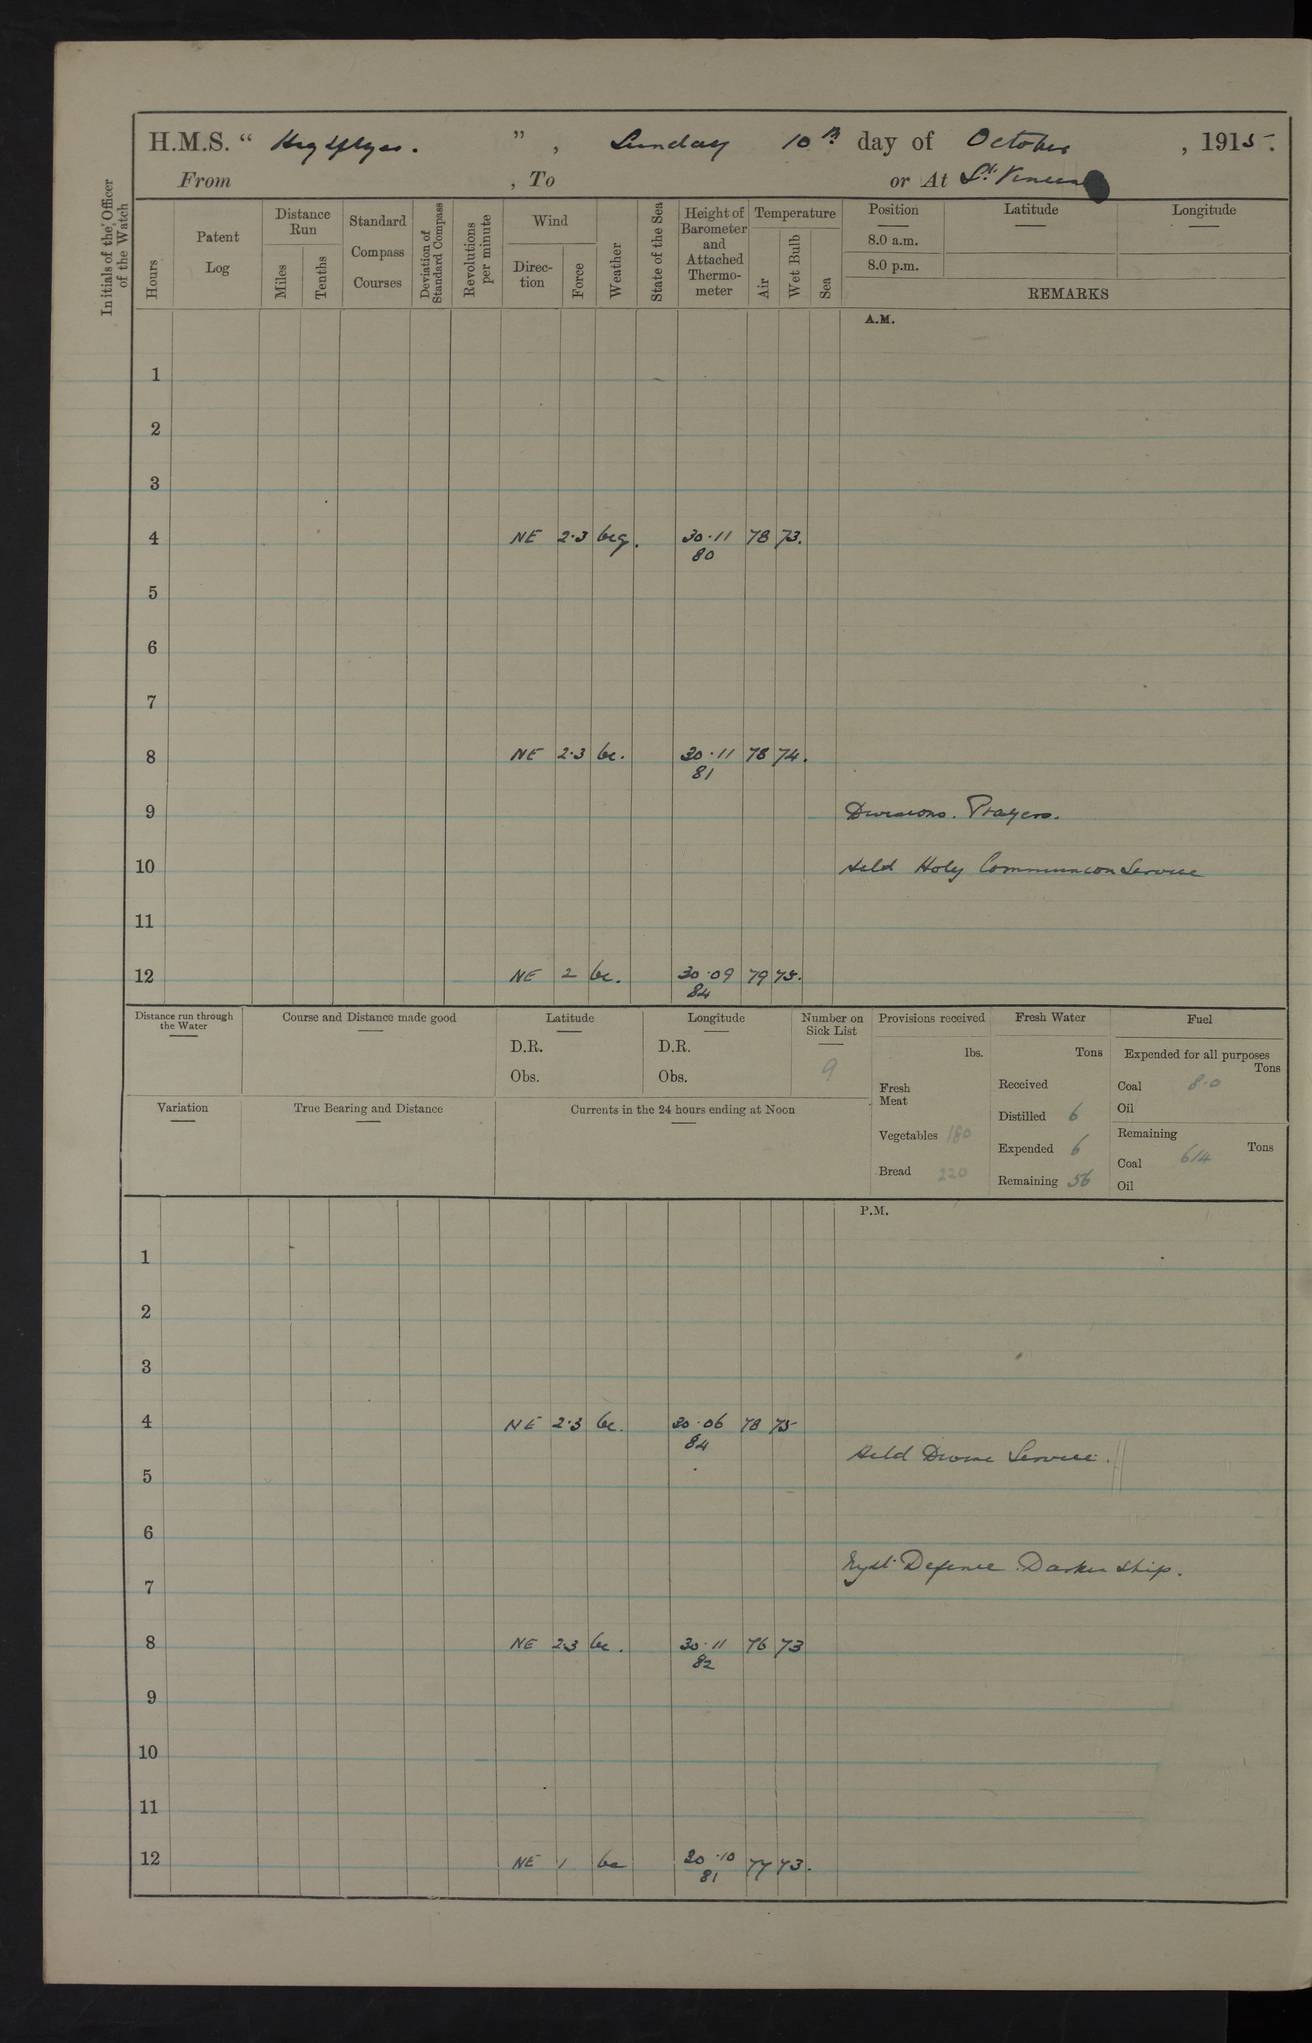 H.M.S. “ Highflyer. ” , Sunday 10th day of October , 1915.
From , To or At St. Vincent
Initials of the Officer of the Watch
Hours
Patent Log
Distance Run
Miles
Tenths
Standard Compass Courses
Deviation of Standard Compass
Revolutions per minute
Wind
Direction
Force
Weather
State of the Sea
Height of Barometer and Attached Thermometer
Temperature
Air
Wet Bulb
Sea
Position
8.0 a.m.
8.0 p.m.
Latitude
Longitude
REMARKS
A.M.
1
2
3
4 NE 2·3 bcq. 30·11 78 73.
80
5
6
7
8 NE 2·3 bc. 30·11 78 74.
81
9 Divisions. Prayers.
10 Held Holy Communion Service
11
12 NE 2 bc. 30·09 79 75.
84
Distance run through the Water
Course and Distance made good
Latitude
D.R.
Obs.
Longitude
D.R.
Obs.
Number on Sick List
9
Provisions received
lbs.
Fresh Meat
Vegetables 180
Bread 220
Fresh Water
Tons
Received
Distilled 6
Expended 6
Remaining 56
Fuel
Expended for all purposes
Tons
Coal 8·0
Oil
Remaining
Tons
Coal 614
Oil
Variation
True Bearing and Distance
Currents in the 24 hours ending at Noon
P.M.
1
2
3
4 NE 2·3 bc. 30·06 78 75
84
Held Divine Service.
5
6
Night Defence. Darken Ship.
7
8 NE 2·3 bc. 30·11 76 73
82
9
10
11
12 NE 1 bc 30·10 77 73.
81